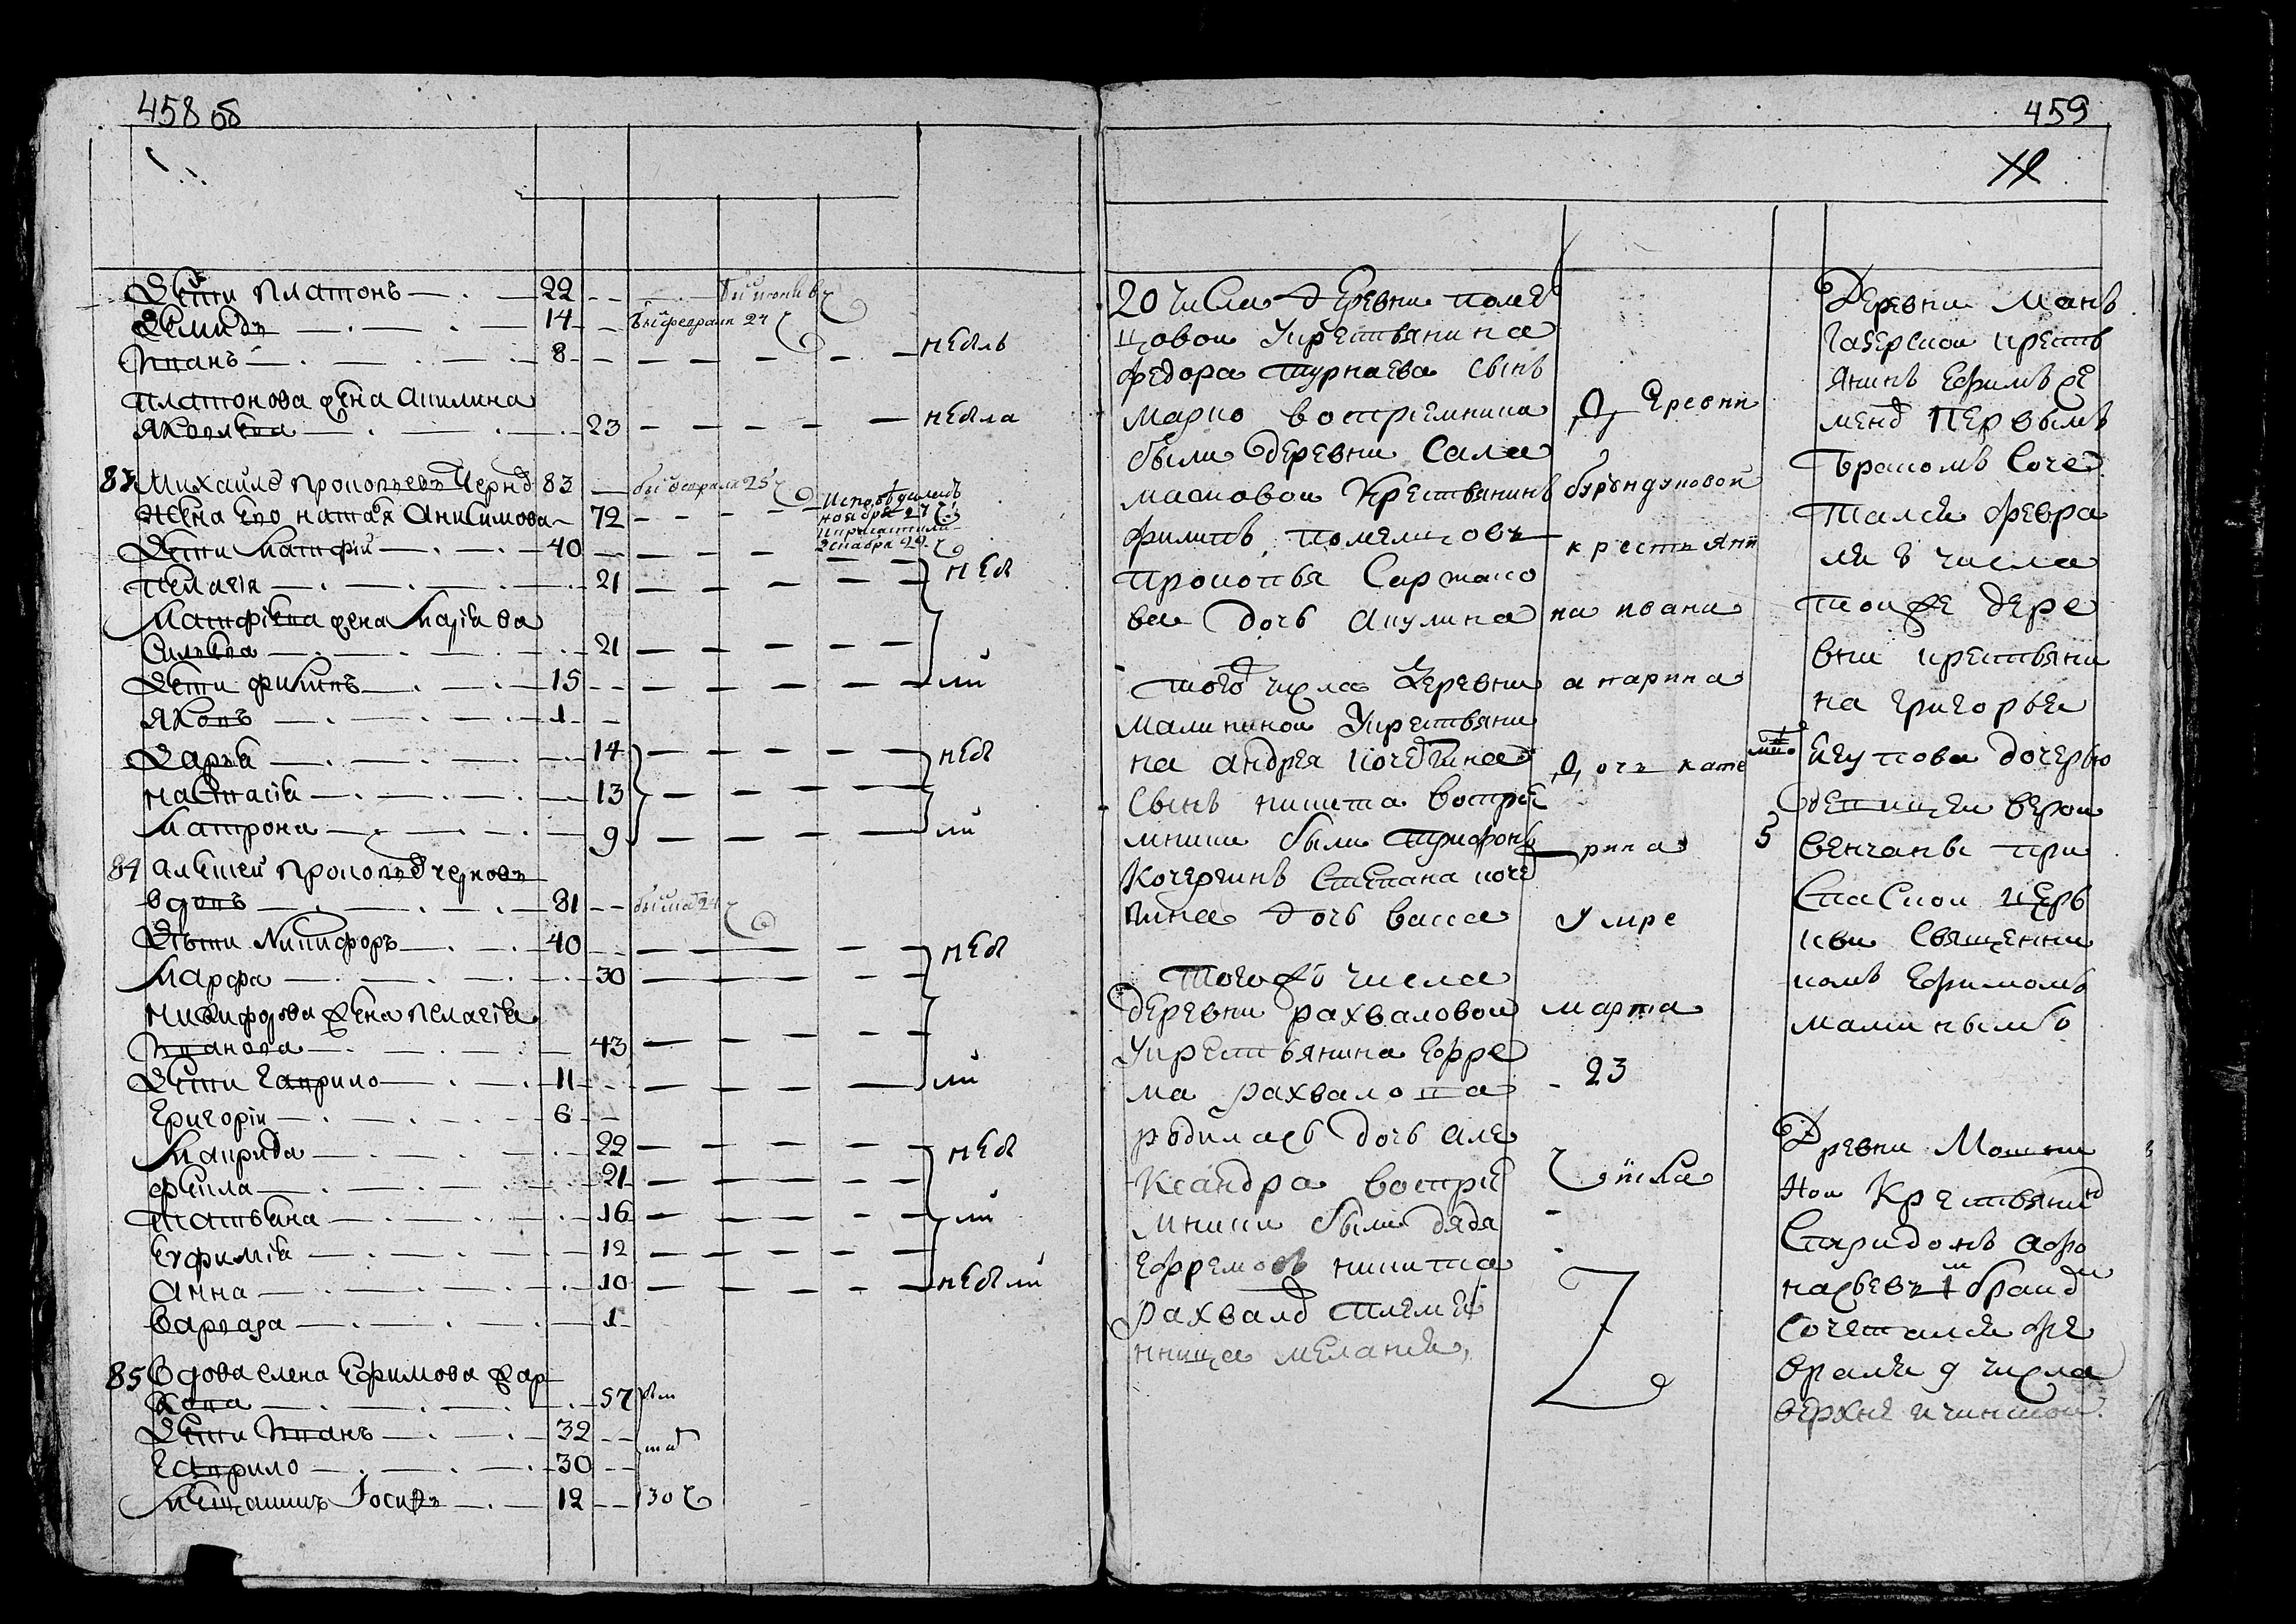 458 об
Дѣти Платонъ 22
Демидъ 14 былъ февраля 24
Иванъ 8 небылъ
Платонова жена Акилина
Яковлева 23 небыла
83 Михаило Прокопьевъ Черно 83 былъ февраля 25 ч
Жена его Наталя Анисимова 72 исповѣдалась
ноября 27 ч
и причастили
декабря 22 ч
Дѣти Матфій 40
Пелагія 21 небы
Матфіева жена Марія Са
вильева 21
Дѣти Филипъ 15 ли
Яковъ 1
Дарія 14 небы
Настасія 13
Матрона 9 ли
84 Алексей Прокопьевъ Черновъ
вдовъ 81
Дѣти Никифоръ 40 небы
Марфа 30
Никифорова жена Пелагія
Иванова 43
Дѣти Гаврило 11 ли
Григорій 6
Маврида 22 небы
Фекла 21
Татьяна 16 ли
Евфимія 12
Анна 10 небыли
Варвара 1
85 Вдова Елена Ефимова Жар
кова 57 бы
Дѣти Иванъ 32
Гаврило 30 мар
Мещанинъ Іосифъ 12 30 ч
459
20 числа деревни поме
щовои укрестьянина
Федора Турнаева сынъ
Марко восприемники
были деревни Сала
матовои крестьянинъ
Филипъ Помельцовъ
Прокопья
ва дочь Акулина
того числа деревни
Малининои укрестьяни
на Андрея Кочергина
сынъ Никита воспрiе
мники были Трифонъ
Кочергинъ Степана Коче
гина дочь Васса
Тогожъ числа
деревни Рахваловои
укрестьянина Ефре
ма Рахвалова
родилась дочь Але
ксандра воспрiе
мники были дядя
Ефремовъ Никита
Рахвало племя
нница Меланія
Деревни
Бурундуковой
крестьяни
на Ивана
апарина
дочь Кате
рина 5
умре
марта
23
числа
Деревни Манъ
газерскои кресть
янинъ Ефимъ Де
менд первымъ
бракомъ соче
тался февра
ля 8 числа
тоиже дере
вни крестьяни
на Григорья
дочерью
девицеи Верои
венчаны при
Спаскои церь
кви священни
комъ Ефимомъ
Древни
нои крестьянинъ
Спиридонъ Афо
насьевъ 1 брако
сочетался фе
враля 9 числа